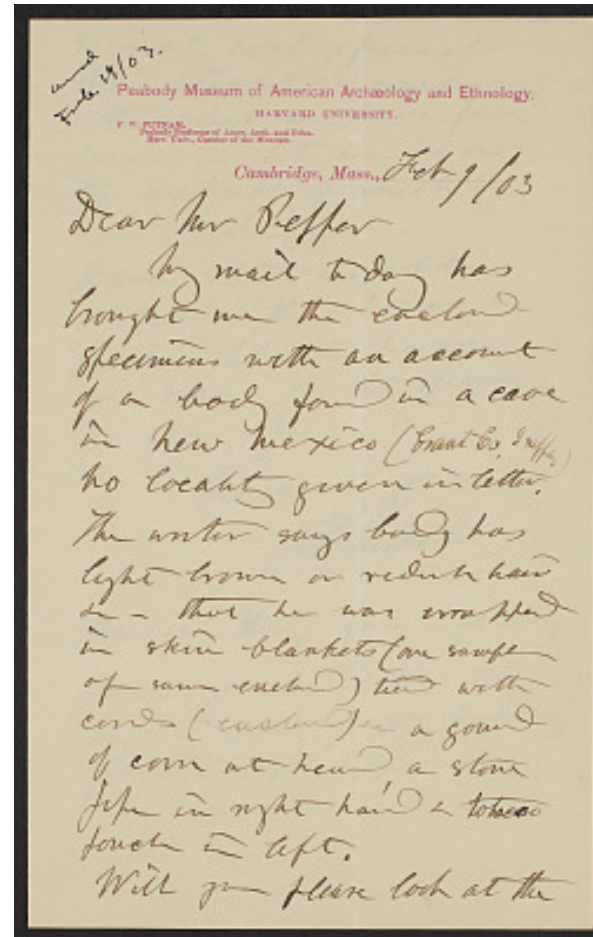 Feb 19/03.
Peabody Museum of American Archæology and Ethnology.
HARVARD UNIVERSITY.
F. W. PUTNAM,
Peabody Professor of Amer. Arch. and Ethn.
Harv. Univ., Curator of the Museum.
Cambridge, Mass., Feb 9/03
Dear Mr Pepper
My mail to day has
brought me the enclosed
specimens with an account
of a body found in a cave
in New Mexico (Grant Co.
no locality given in letter.
The writer says body has
light brown or redish hair
& - that he was wrapped
in skin blankets (one sample
of same enclosed) tied with
cords (enclosed) a gourd
of corn at head, a stone
pipe in right hand & tobacco
pouch in left.
Will you please look at the